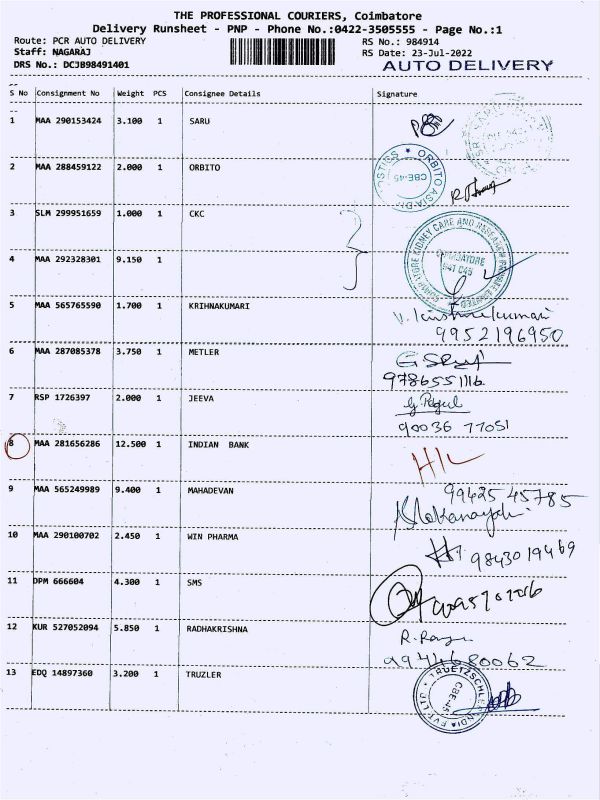 THE PROFESSIONAL COURIERS, Coimbatore
Delivery Runsheet - PNP - Phone No.:0422-3505555 - Page No.:1
Route: PCR AUTO DELIVERY RS No.: 984914
Staff: NAGARAJ RS Date: 23-Jul-2022
DRS No.: DCJB98491401 AUTO DELIVERY
S No Consignment No Weight PCS Consignee Details Signature
1 MAA 290153424 3.100 1 SARU
2 MAA 288459122 2.000 1 ORBITO
ORBITO ASIA DIAGNOSTICS
CBE-45
3 SLM 299951659 1.000 1 CKC
COIMBATORE KIDNEY CARE AND RESEARCH PRIVATE LIMITED
COIMBATORE
641 045
4 MAA 292328301 9.150 1
5 MAA 565765590 1.700 1 KRIHNAKUMARI
V. Krishnakumari
9952196950
6 MAA 287085378 3.750 1 METLER
9786551116
7 RSP 1726397 2.000 1 JEEVA
90036 77051
8 MAA 281656286 12.500 1 INDIAN BANK
H/L
9 MAA 565249989 9.400 1 MAHADEVAN
99425 45785
10 MAA 290100702 2.450 1 WIN PHARMA
9843019469
11 DPM 666604 4.300 1 SMS
12 KUR 527052094 5.850 1 RADHAKRISHNA
9944680062
13 EDQ 14897360 3.200 1 TRUZLER
TRUETZSCHLER INDIA PVT LTD
CBE-45